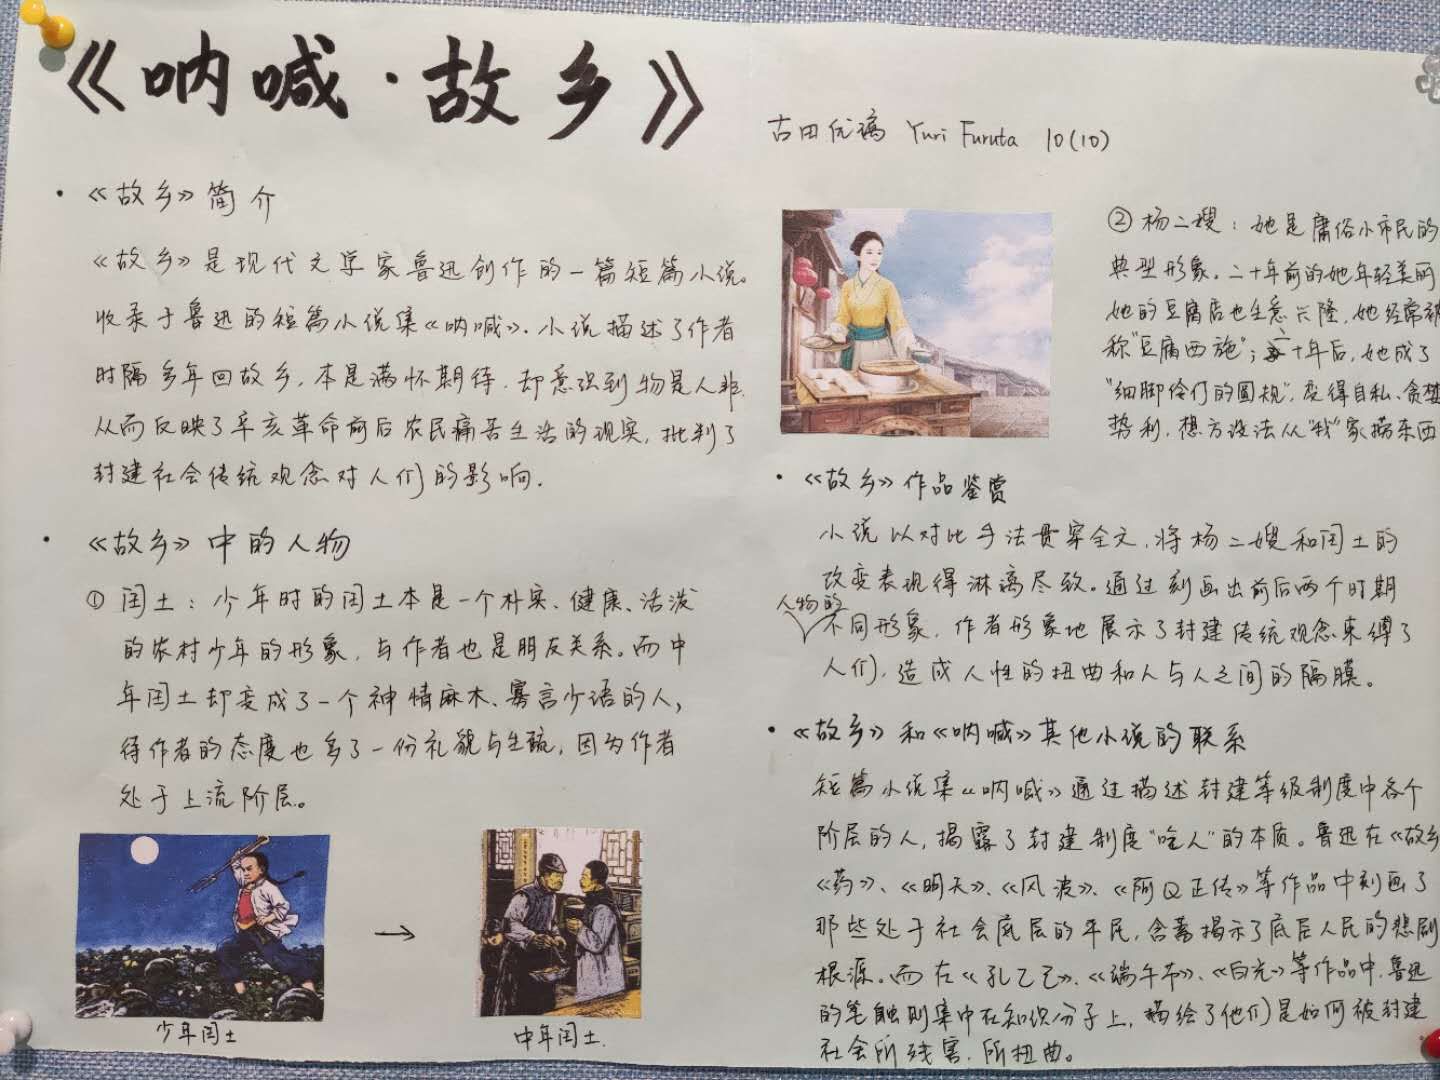 《呐喊·故乡》
古田优漓 Yuri Furuta 10(10)
·《故乡》简介
《故乡》是现代文学家鲁迅创作的一篇短篇小说。
收录于鲁迅的短篇小说集《呐喊》。小说描述了作者
时隔多年回故乡,本是满怀期待,却意识到物是人非,
从而反映了辛亥革命前后农民痛苦生活的现实,批判了
封建社会传统观念对人们的影响.
·《故乡》中的人物
① 闰土:少年时的闰土本是一个朴实、健康、活泼
的农村少年的形象,与作者也是朋友关系。而中
年闰土却变成了一个神情麻木、寡言少语的人,
待作者的态度也多了一份礼貌与生疏,因为作者
处于上流阶层。
少年闰土
→
中年闰土.
② 杨二嫂:她是庸俗小市民的
典型形象。二十年前的她年轻美丽
她的豆腐店也生意兴隆,她经常被
称"豆腐西施";二十年后,她成了
"细脚伶仃的圆规",变得自私、贪婪
势利,想方设法从"我"家捞东西
·《故乡》作品鉴赏
小说以对比手法贯穿全文,将杨二嫂和闰土的
改变表现得淋漓尽致。通过刻画出前后两个时期
人物的
不同形象,作者形象地展示了封建传统观念束缚了
人们,造成人性的扭曲和人与人之间的隔膜。
·《故乡》和《呐喊》其他小说的联系
短篇小说集《呐喊》通过描述封建等级制度中各个
阶层的人,揭露了封建制度"吃人"的本质。鲁迅在《故乡
《药》、《明天》、《风波》、《阿Q正传》等作品中刻画了
那些处于社会底层的平民,含蓄揭示了底层人民的悲剧
根源。而在《孔乙己》、《端午节》、《白光》等作品中,鲁迅
的笔触则集中在知识分子上,描绘了他们是如何被封建
社会所残害,所扭曲。